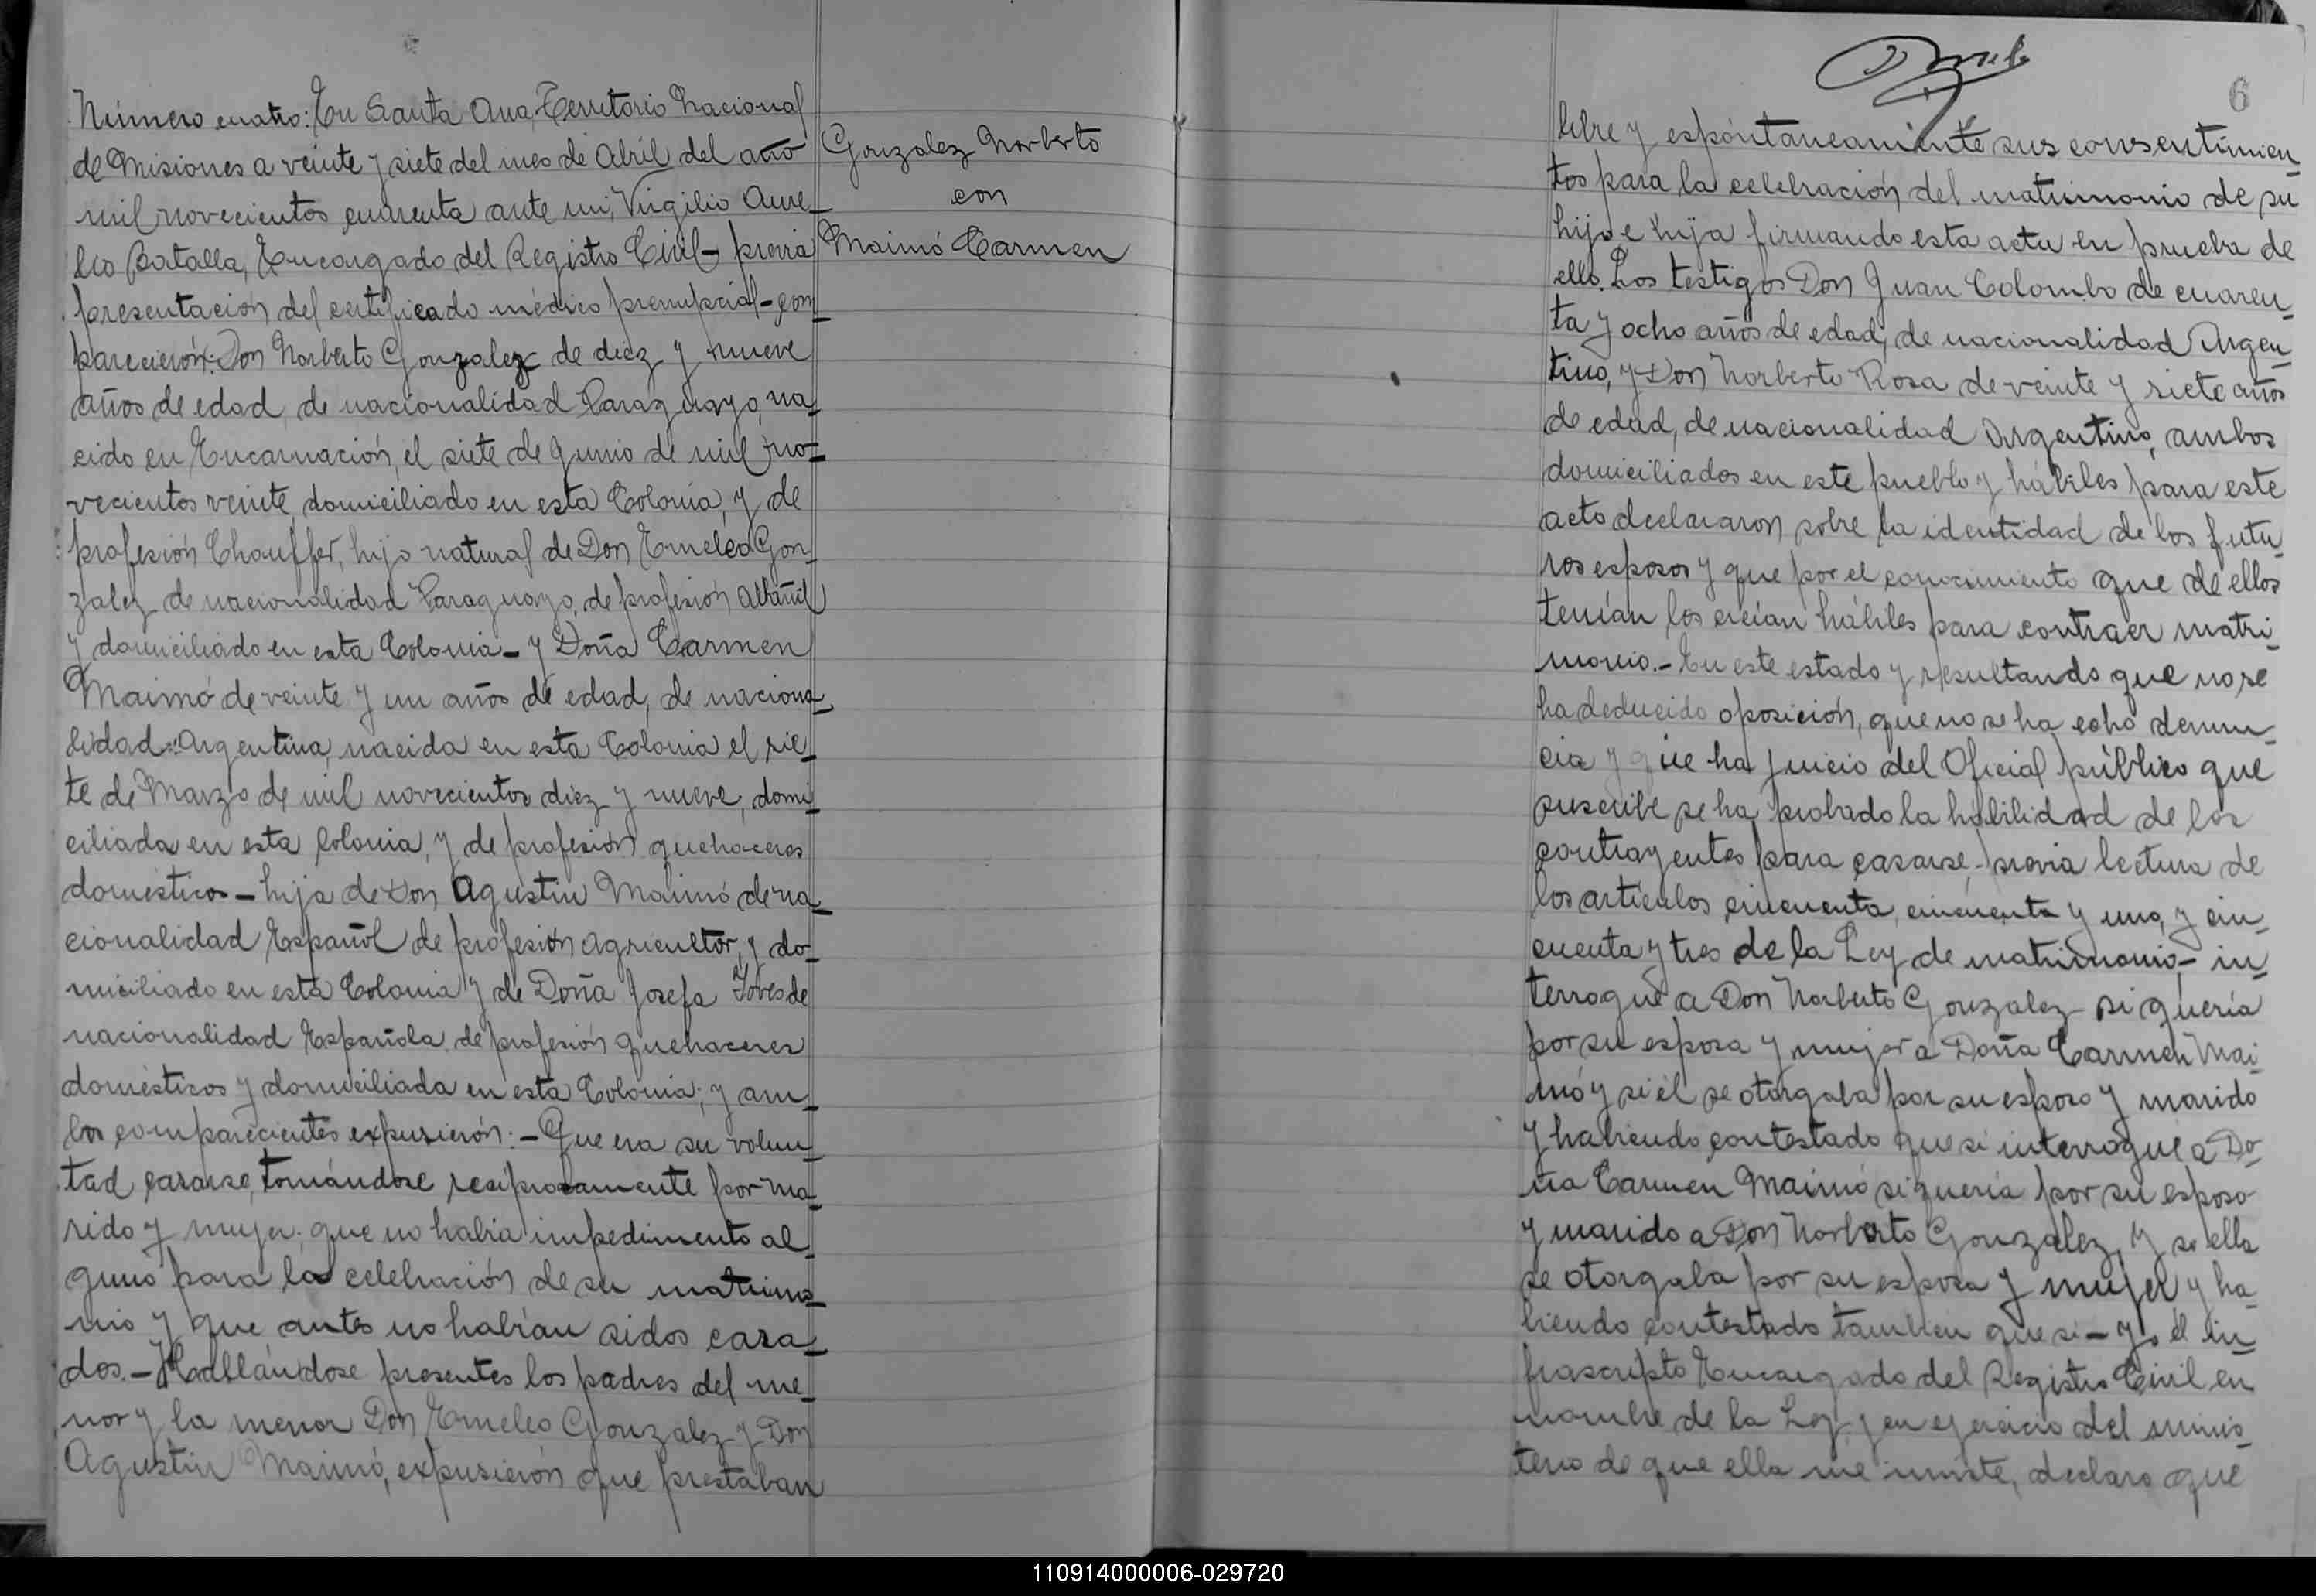 Número cuatro: En Santa Ana, Territorio Nacional
de Misiones a veinte y siete del mes de Abril del año
mil novecientos cuarenta ante mi, Virgilio Aure_
lio Batalla, Encargado del Registro Civil - previa
presentación del certificado médico prenupcial - com_
parecierón: Don Norberto Gonzalez de diez y nueve
años de edad, de nacionalidad Paraguayo, na_
cido en Encarnación, el siete de Junio de mil no_
vecientos veinte, domiciliado en esta Colonia, y de
profesión Chouffer, hijo natural de Don Emeleo Gon_
zalez de nacionalidad Paraguayo, de profesión Albañil
y domiciliado en esta Colonia - y Doña Carmen
Maimó de veinte y un años de edad, de naciona_
lidad: Argentina, nacida en esta Colonia el sie_
te de Marzo de mil novecientos diez y nueve, domi_
ciliada en esta Colonia, y de profesión quehaceres
domésticos - hija de Don Agustin Maimó de na_
cionalidad Español de profesión agricultor, y do_
miciliado en esta Colonia y de Doña Josefa de
nacionalidad Española de profesión quehaceres
domésticos y domiciliada en esta Colonia; y am_
bos comparecientes expusierón: - Que era su volun_
tad casarse, tomándose resiprocamente por ma_
rido y mujer; que no habia impedimento al_
guno para la celebración de su matrimo_
nio y que antes no habían sidos casa_
dos. - Hallándose presentes los padres del me_
nor y la menor Don Emeleo Gonzalez y Don
Agustin Maimó, expusierón que prestaban
Gonzalez Norberto
con
Maimó Carmen
6
libre y espóntaneamente sus consentimien_
tos para la celebración del matrimonio de su
hijo e hija firmando esta acta en prueba de
ello. Los testigos Don Juan Colombo de cuaren_
ta y ocho años de edad, de nacionalidad Argen_
tino, y Don Norberto Rosa de veinte y siete años
de edad, de nacionalidad Argentino, ambos
domiciliados en este pueblo y hábiles para este
acto declararon sobre la identidad de los futu_
ros esposos y que por el conocimiento que de ellos
tenían los creían hábiles para contraer matri_
monio. - En este estado y resultando que no se
ha deducido oposición, que no se ha echo denun_
cia y que ha juicio del Oficial público que
suscribe se ha probado la habilidad de los
contrayentes para casarse, - previa lectura de
los artículos cincuenta, cincuenta y uno, y cin_
cuenta y tres de la Ley de matrimonio - in_
terrogué a Don Norberto Gonzalez si quería
por su esposa y mujer a Doña Carmen Mai_
mó y si él se otorgaba por su esposo y marido
y habiendo contestado que si interrogué a Do_
ña Carmen Maimó si quería por su esposo
y marido a Don Norberto Gonzalez, y si ella
se otorgaba por su esposa y mujer y ha_
biendo contestado tambien que si - yo él in_
frascripto Encargado del Registro Civil en
nombre de la Ley y en ejercicio del minis_
terio de que ella me inviste, declaro que
110914000006-029720